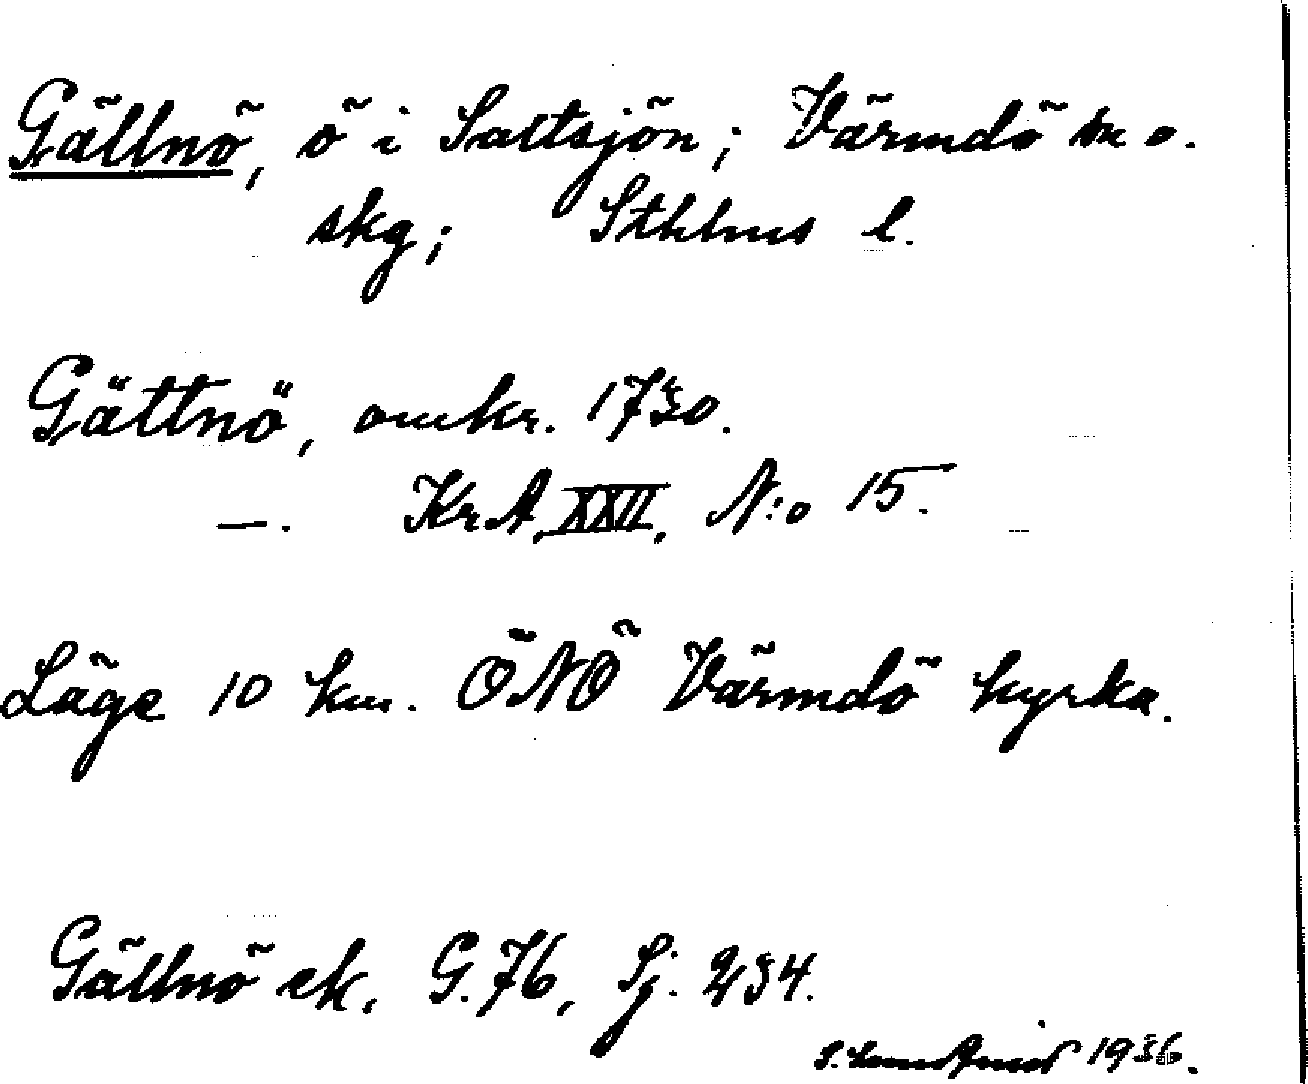 Gällnö, ö i Saltsjön; Värmdö sn o.
skg; Sthlms l.
Gättnö, omkr. 1730.
—. KrA, XXII, N:o 15.
Läge 10 km. ÖNÖ Värmdö kyrka.
Gällnö ek. G.76, Sj. 234.
S. 1936.